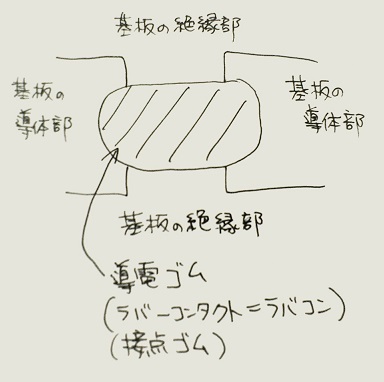 基板の絶縁部
基板の
導体部
基板の
導体部
基板の絶縁部
導電ゴム
(ラバーコンタクト=ラバコン)
(接点ゴム)